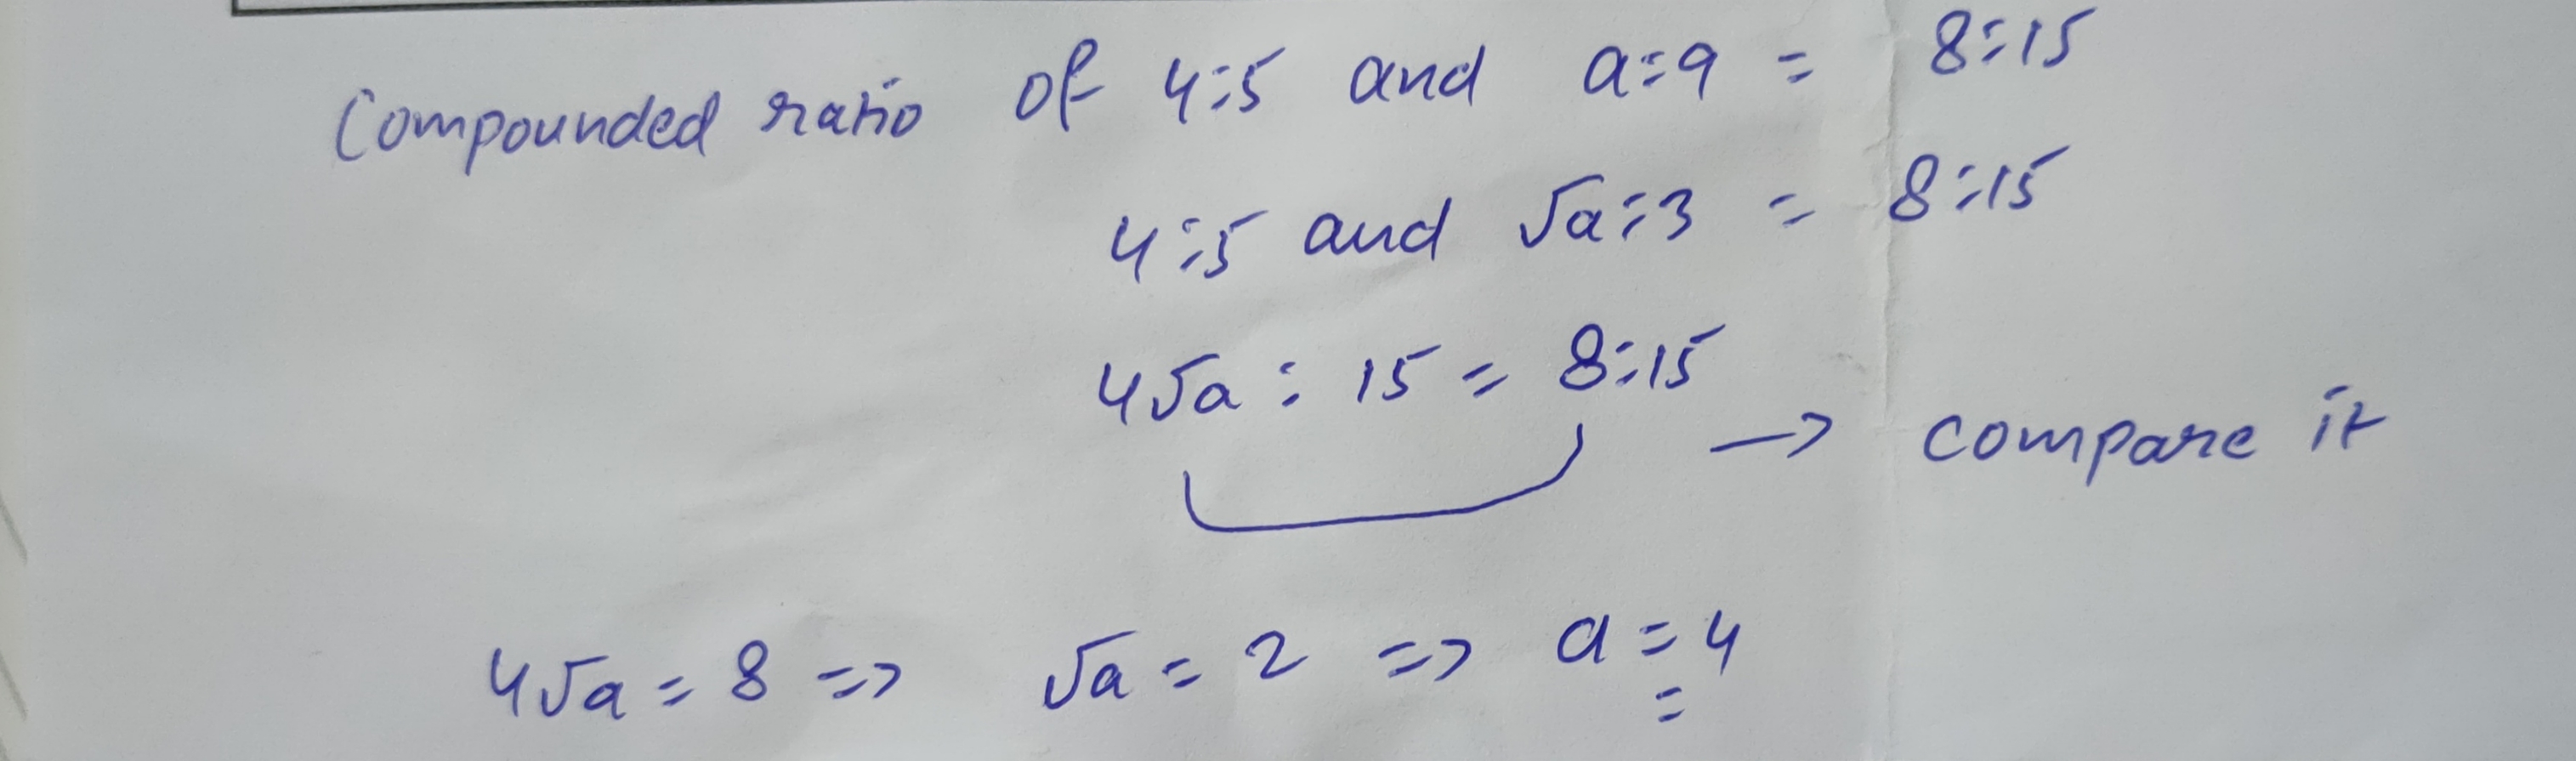 Compounded ratio of 4:5 and a:9 = 8:15
4:5 and √a:3 = 8:15
4√a : 15 = 8:15
→ compare it
4√a = 8 => √a = 2 => a = 4